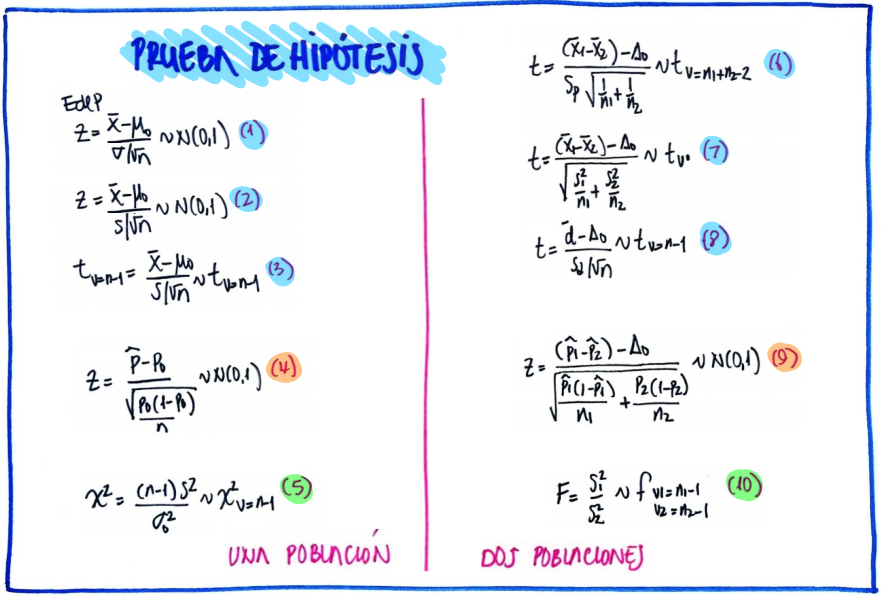 PRUEBA DE HIPÓTESIS
EdeP
Z = x̄-μ₀ / σ/√n ~ N(0,1) (1)
Z = x̄-μ₀ / s/√n ~ N(0,1) (2)
t v=n-1 = x̄-μ₀ / S/√n ~ t v=n-1 (3)
Z = p̂-p₀ / √(p₀(1-p₀)/n) ~ N(0,1) (4)
χ² = (n-1)S² / σ₀² ~ χ² v=n-1 (5)
UNA POBLACIÓN
t = (x̄₁-x̄₂)-Δ₀ / Sp √(1/n₁ + 1/n₂) ~ t v=n₁+n₂-2 (6)
t = (x̄₁-x̄₂)-Δ₀ / √(S₁²/n₁ + S₂²/n₂) ~ t v• (7)
t = d̄-Δ₀ / Sd/√n ~ t v=n-1 (8)
Z = (p̂₁-p̂₂)-Δ₀ / √(p̂₁(1-p̂₁)/n₁ + p₂(1-p₂)/n₂) ~ N(0,1) (9)
F = S₁² / S₂² ~ f v1=n₁-1 v2=n₂-1 (10)
DOS POBLACIONES